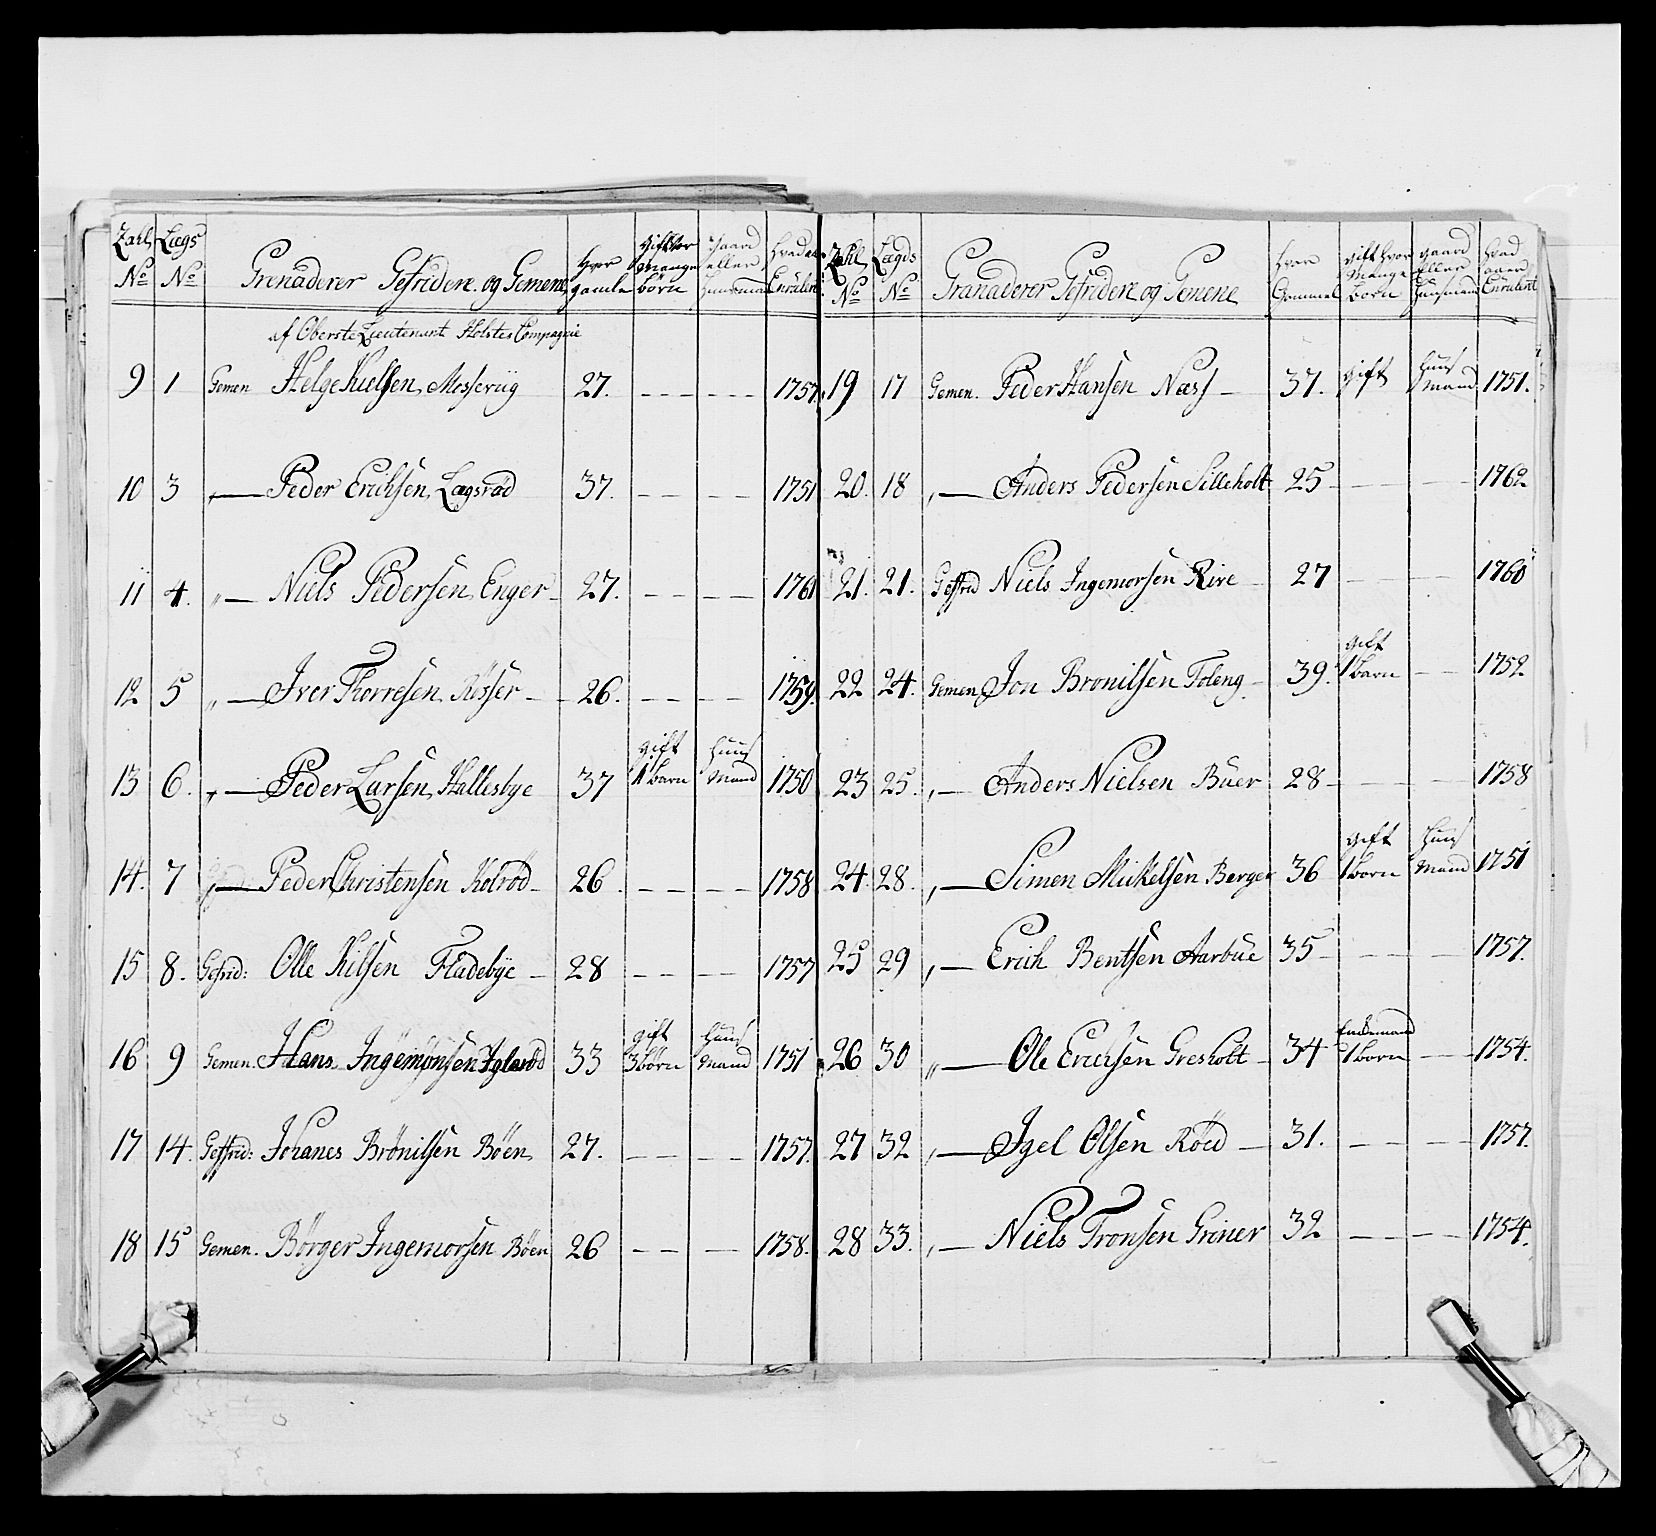 Zahl No | Lægs No | Grenaderer Gefridere og Gemene | Hvor gamle | Gift hvor mange børn | Gaard eller Huusmand | Hvad aar Enrulert
af Oberste Lieutenant Holstes Compagnie
9 | 1 | Gemen Helge Kielsen, Messeriig | 27. | - - - | - - - | 1757.
10 | 3 | „— Peder Erichsen, Lægsrød | 37. | - - | - - | 1751
11 | 4. | „— Niels Pedersen, Enger | 27. | - - | - - | 1761
12 | 5 | „— Iver Thorresen, Rösser | 26. | - - | - - | 1759.
13 | 6. | „— Peder Larsen, Hallesbye | 37 | gift 1 barn | Huus Mand | 1750
14. | 7 | „— Peder Christensen Kolröd | 26. | - - | - - | 1758
15 | 8. | Gefrid: Olle Kilsen Fladebye | 28 | - - | - - | 1757
16 | 9 | Gemen. Hans Ingemonsen Igleröd | 33 | gift 3 börn | Huus Mand | 1751
17 | 14. | Geffrid: Johanes Brönilsen Böen | 27. | - - | - - | 1757.
18 | 15 | Gemen. Börger Ingemorsen Böen | 26 | - - | - - | 1758.
Zahl No | Lægds No | Granaderer Gefridere og Gemene | Hvor Gammel | gift hvor Mange born | gaard Eller Huusmand | Hvad aaer Enrulert
19 | 17 | Gemen. Peder Hansen Næss | 37. | gift | Huus Mand | 1751.
20. | 18 | „— Anders Pedersen Silleholt | 25 | - - | - - | 1762
21. | 21. | Geffrid Niels Ingemorsen Rire | 27 | - - | - - | 1760
22 | 24. | Gemen, Jon Bronilsen Toleng | 39. | gift 1 barn | - - | 1752
23 | 25. | „— Anders Nielsen Buer | 28 | - - | - - | 1758
24 | 28. | „— Simen Mickelsen Berger | 36 | gift 1 born | Huus Mand | 1751
25 | 29 | „— Erich Bentsen Aarbue | 35 | - - | - - | 1757.
26 | 30 | „— Ole Erichsen Gresholt | 34 | Enkemand 1 born | - - | 1754.
27 | 32 | „— Igel Olsen Röed | 31. | - - | - - | 1757.
28 | 33. | „— Niels Tronsen Griner | 32 | - - | - - | 1754.